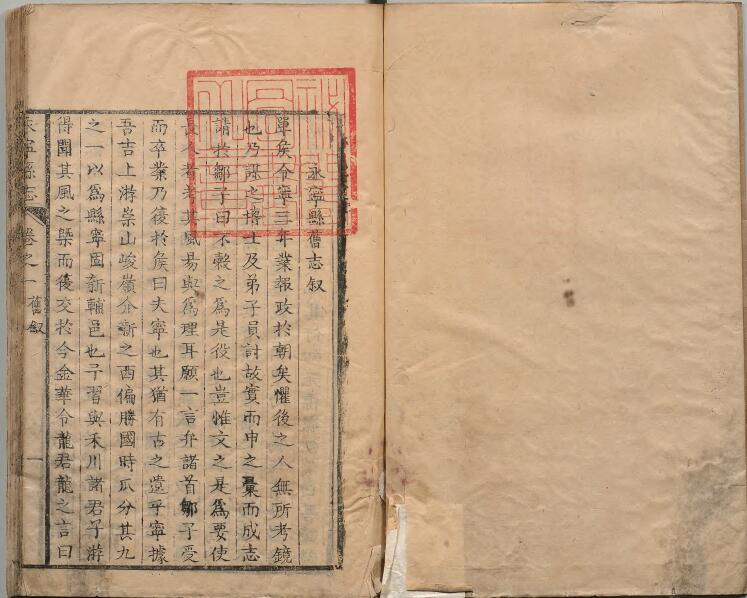 永寧縣舊志叙
單矦令寧三年業報政於朝矣懼後之人無所考鏡
也乃謀之博士及弟子員討故實而申之槖而成志
請於鄒子曰不穀之爲是役也豈惟文之是爲要使
長人者考其風昜與爲理耳願一言弁諸首鄒子受
而卒業乃復於矦曰夫寧也其猶有古之遺乎寧據
吾吉上游崇山峻嶺介新之西偏勝國時瓜分其九
之一以爲縣寧固新輔邑也予習與禾川諸君子游
得聞其風之槩而後交於今金華令龍君龍之言曰
永寧縣志 卷之一 舊叙 一